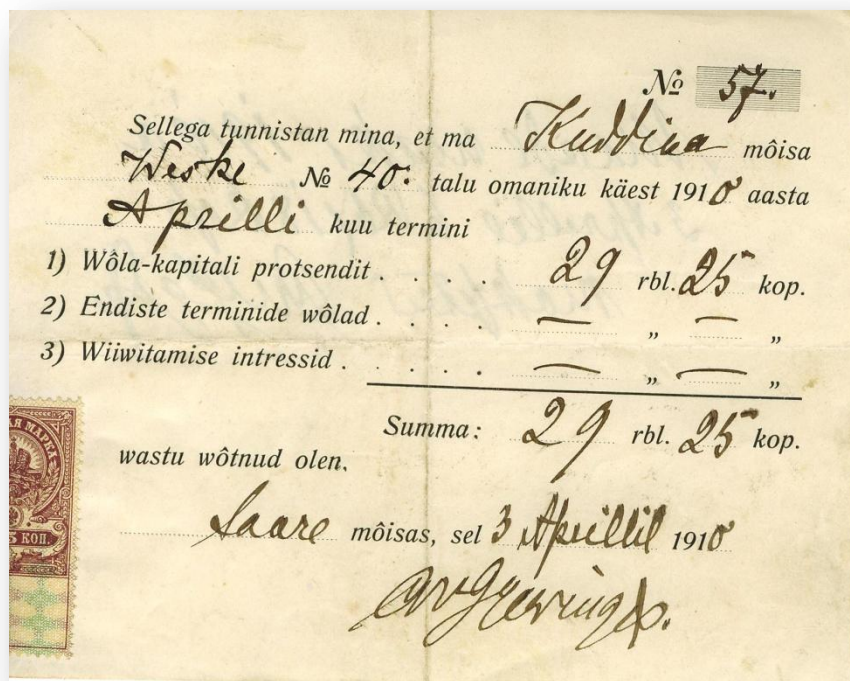 № 57.
Sellega tunnistan mina, et ma Kuddina môisa
Weske № 40. talu omaniku käest 1910 aasta
Aprilli kuu termini
1) Wôla-kapitali protsendit . . . . 29 rbl. 25 kop.
2) Endiste terminide wôlad . . . . — „ — „
3) Wiiwitamise intressid . . . . . — „ — „
Summa: 29 rbl. 25 kop.
wastu wôtnud olen.
Saare môisas, sel 3 Aprillil 1910
АЯ МАРКА
5 КОП.